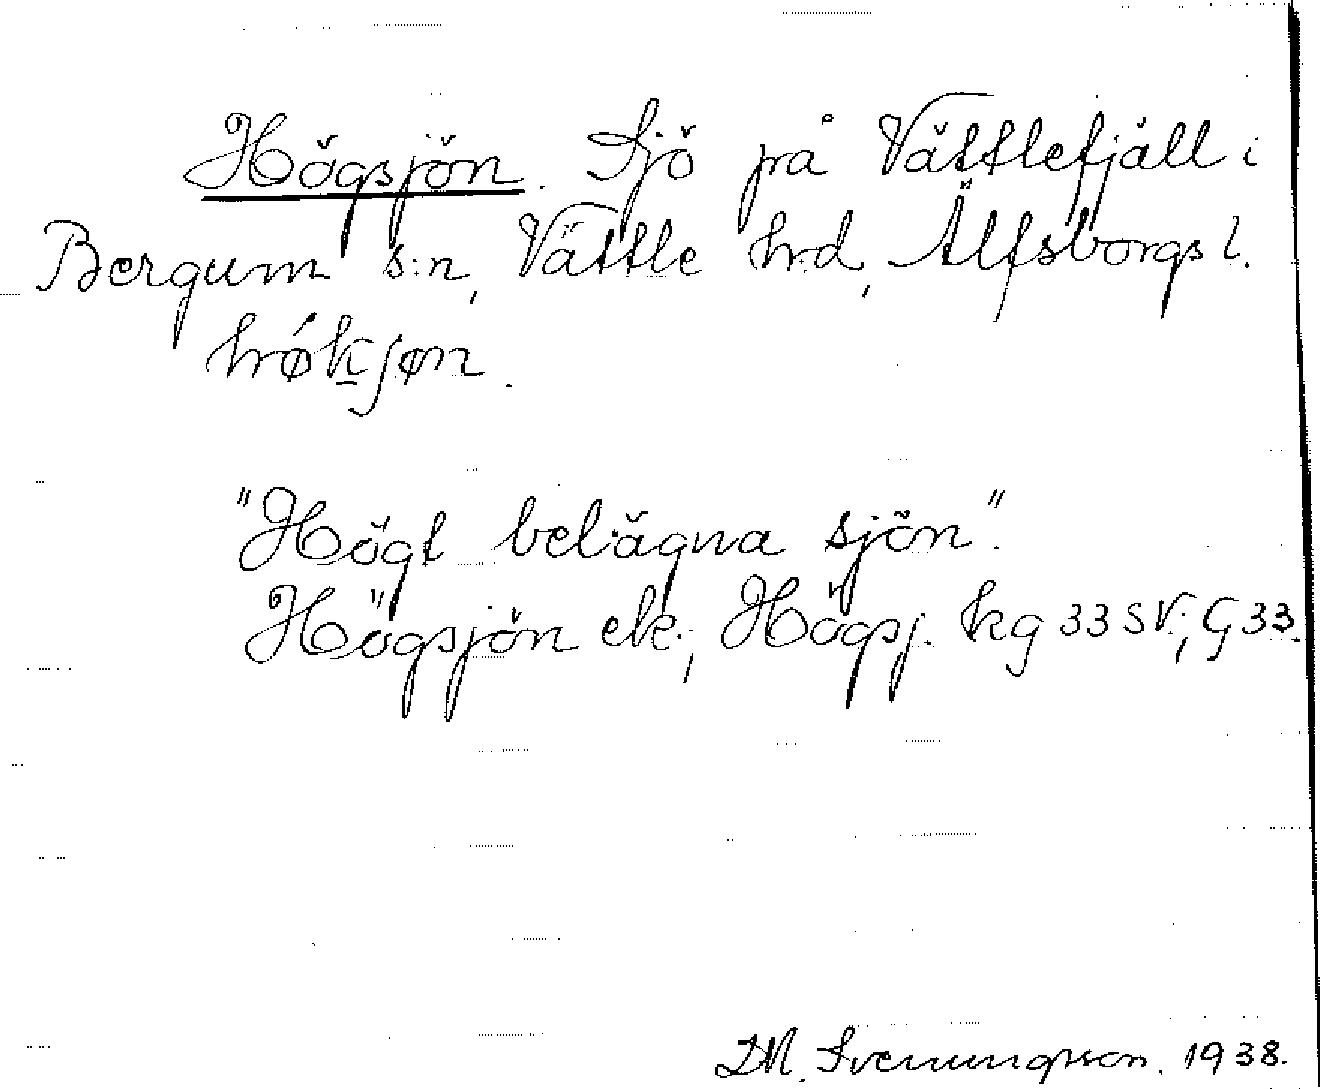 Högsjön. Sjö på Vättlefjäll i
Bergum s:n, Vättle hrd, Älfsborgs l.
hǿk̲ʃøn.
"Högt belägna sjön".
Högsjön ek.; Högsj. kg 33 SV; G 33.
D.M. Svenungsson. 1938.